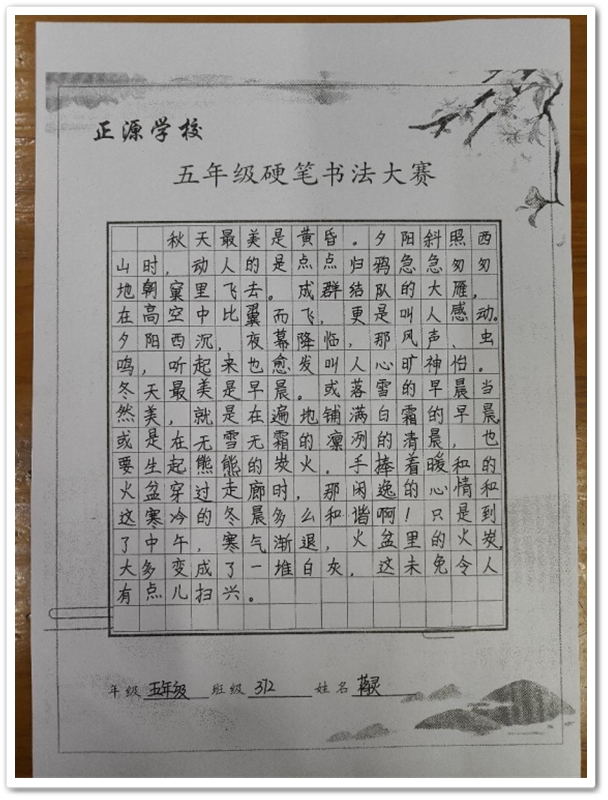 正源学校
五年级硬笔书法大赛
秋天最美是黄昏。夕阳斜照西
山时，动人的是点点归鸦急急匆匆
地朝窠里飞去。成群结队的大雁，
在高空中比翼而飞，更是叫人感动。
夕阳西沉，夜幕降临，那风声、虫
鸣，听起来也愈发叫人心旷神怡。
冬天最美是早晨。或落雪的早晨当
然美，就是在遍地铺满白霜的早晨，
或是在无雪无霜的凛冽的清晨，也
要生起熊熊的炭火。手捧着暖和的
火盆穿过走廊时，那闲逸的心情和
这寒冷的冬晨多么和谐啊！只是到
了中午，寒气渐退，火盆里的火炭，
大多变成了一堆白灰，这未免令人
有点儿扫兴。
年级 五年级 班级 312 姓名